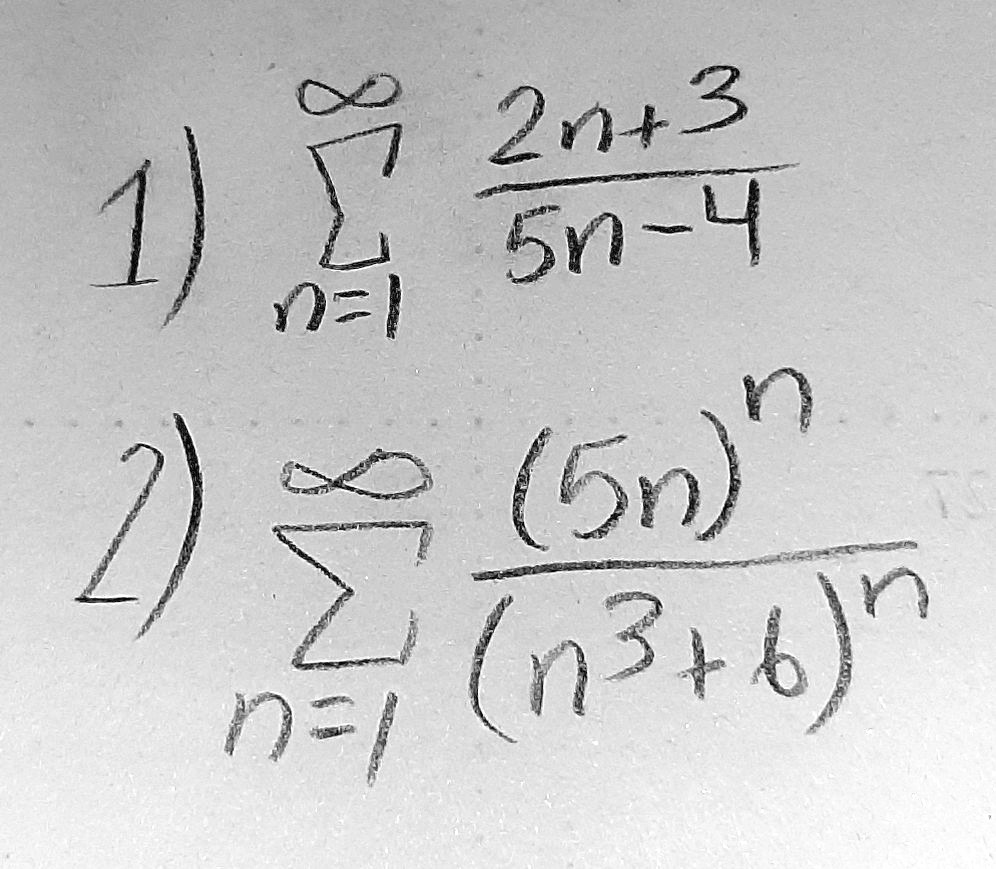 1) ∞ ∑ n=1 (2n+3)/(5n-4)
2) ∞ ∑ n=1 (5n)^n/(n^3+6)^n